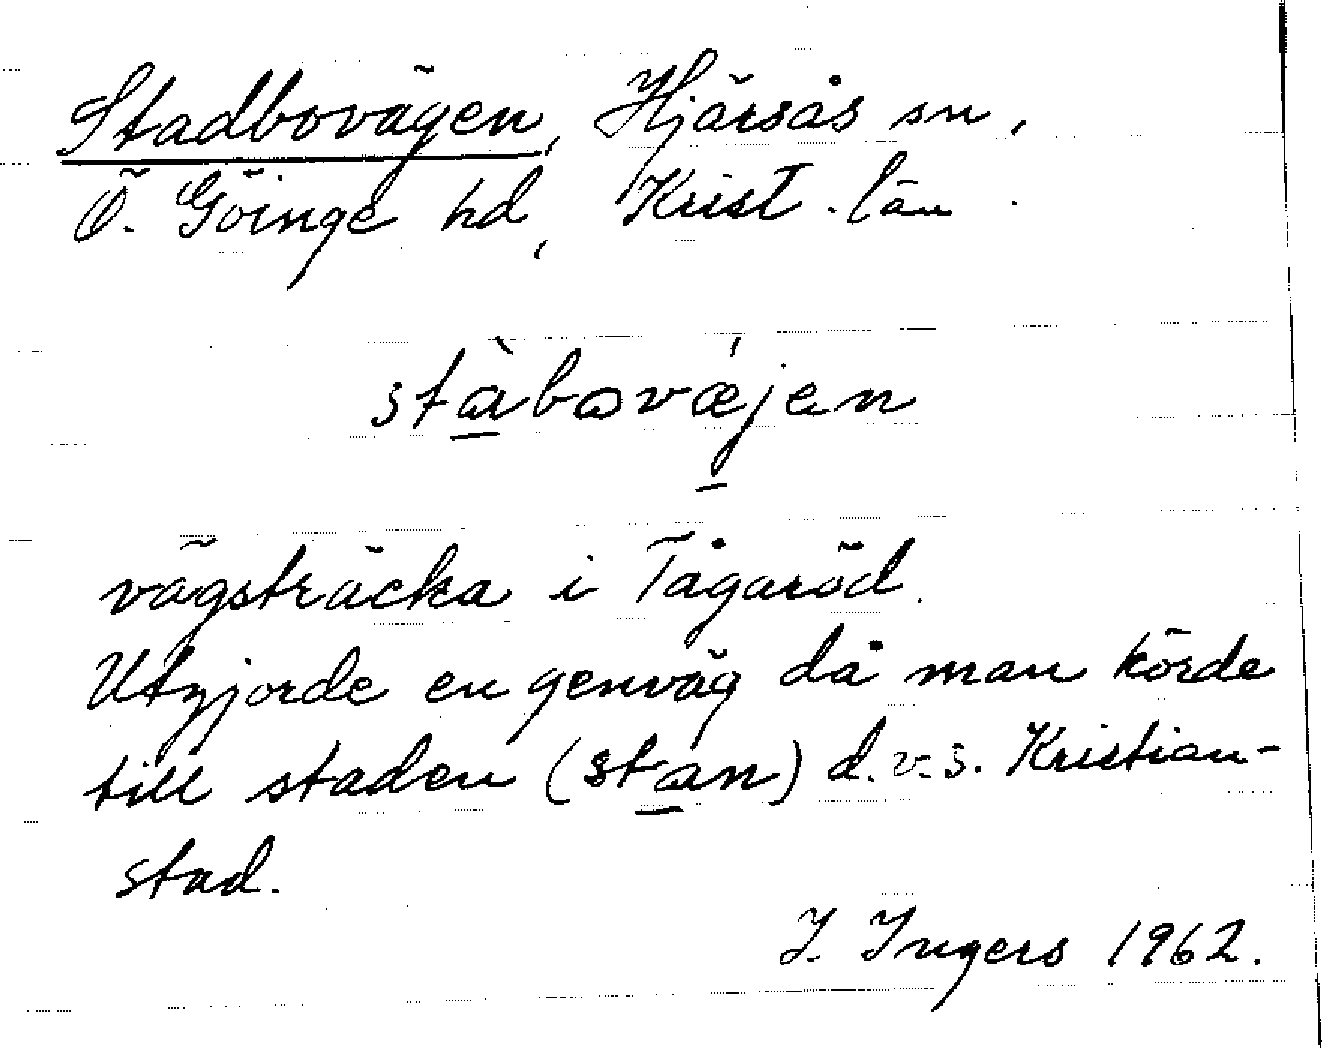 Stadbovägen, Hjärsås sn,
Ö. Göinge hd, Krist. län.
stàbovǽjen
vägsträcka i Tågaröd.
Utgjorde en genväg då man körde
till staden (stan) d.v.s. Kristian-
stad.
I. Ingers 1962.